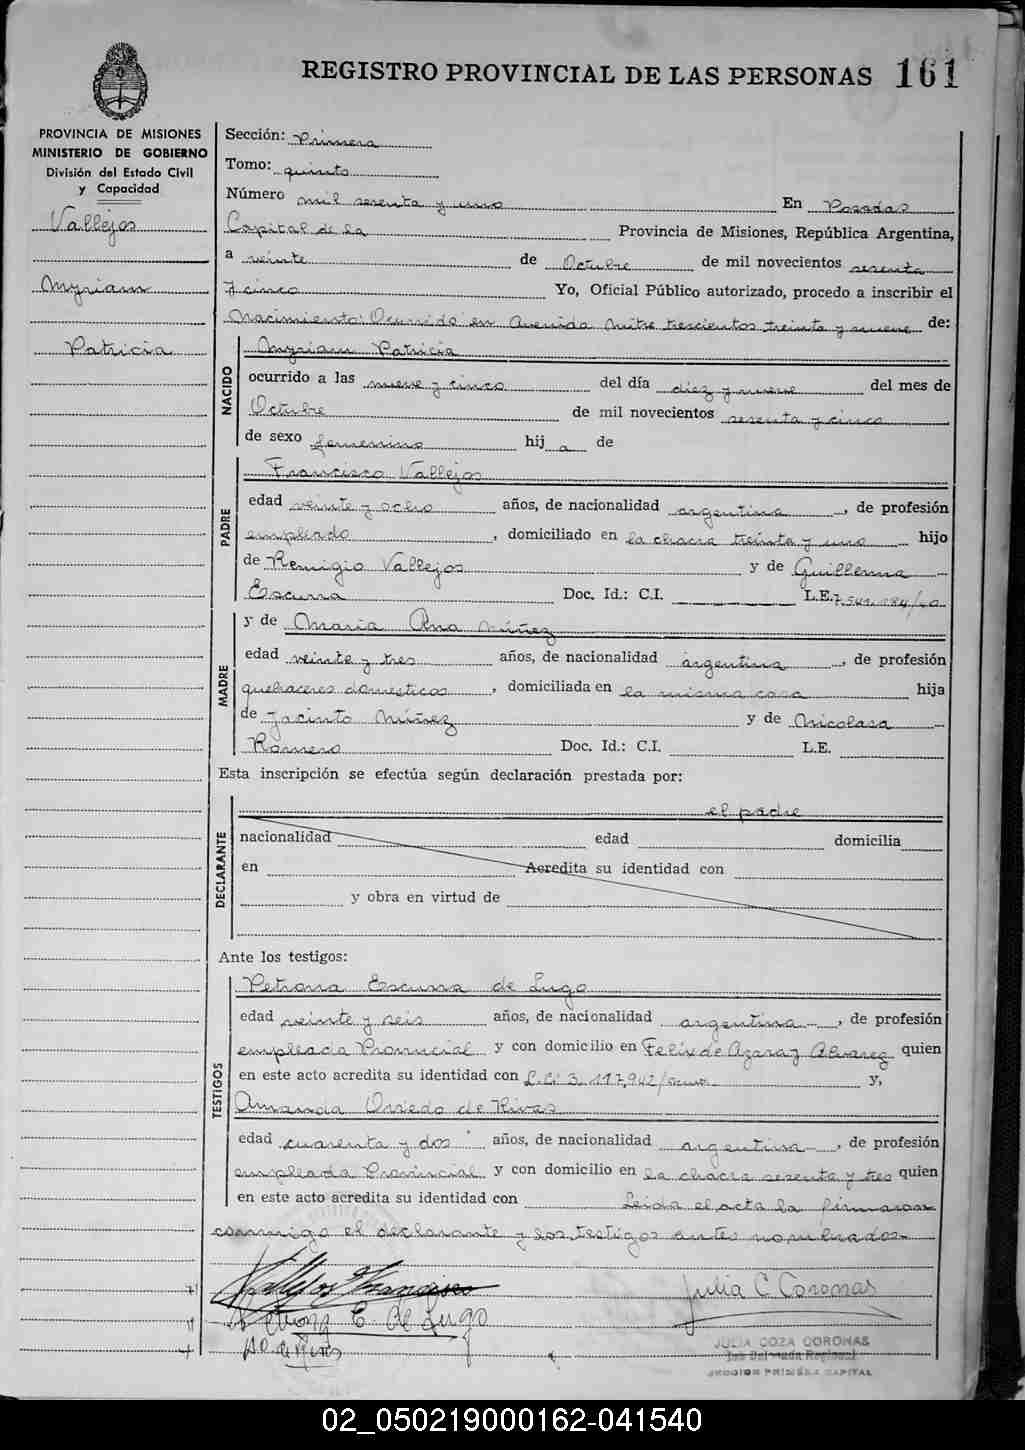 REGISTRO PROVINCIAL DE LAS PERSONAS 161
PROVINCIA DE MISIONES
MINISTERIO DE GOBIERNO
División del Estado Civil
y Capacidad
Vallejos
Myriam
Patricia
Sección: Primera
Tomo: quinto
Número mil sesenta y uno En Posadas
Capital de la Provincia de Misiones, República Argentina,
a veinte de Octubre de mil novecientos sesenta
y cinco Yo, Oficial Público autorizado, procedo a inscribir el
Nacimiento: Ocurrido en Avenida Mitre trescientos treinta y nueve de:
NACIDO
Myriam Patricia
ocurrido a las nueve y cinco del día diez y nueve del mes de
Octubre de mil novecientos sesenta y cinco
de sexo femenino hij a de
PADRE
Francisco Vallejos
edad veinte y ocho años, de nacionalidad argentina, de profesión
empleado, domiciliado en la chacra treinta y uno hijo
de Remigio Vallejos y de Guillerma
Escurra Doc. Id.: C.I. L.E.
MADRE
y de María Ana Núñez
edad veinte y tres años, de nacionalidad argentina, de profesión
quehaceres domesticos, domiciliada en la misma casa hija
de Jacinto Núñez y de Nicolasa
Romero Doc. Id.: C.I. L.E.
Esta inscripción se efectúa según declaración prestada por:
DECLARANTE
el padre
nacionalidad edad domicilia
en Acredita su identidad con
y obra en virtud de
Ante los testigos:
TESTIGOS
Petrona Escurra de Lugo
edad veinte y seis años, de nacionalidad argentina, de profesión
empleada Provincial y con domicilio en Felix de Azara y Alvarez quien
en este acto acredita su identidad con L.C. 3.197.942 y,
Amanda Oviedo de Rivas
edad cuarenta y dos años, de nacionalidad argentina, de profesión
empleada Provincial y con domicilio en la chacra sesenta y tres quien
en este acto acredita su identidad con Leida el acta la firmaron
conmigo el declarante y los testigos antes nombrados.
Vallejos Francisco
Julia C Coronas
Petrona E. de Lugo
A.O. de Rivas
JULIA COZA CORONAS
SECCION PRIMERA CAPITAL
02_050219000162-041540